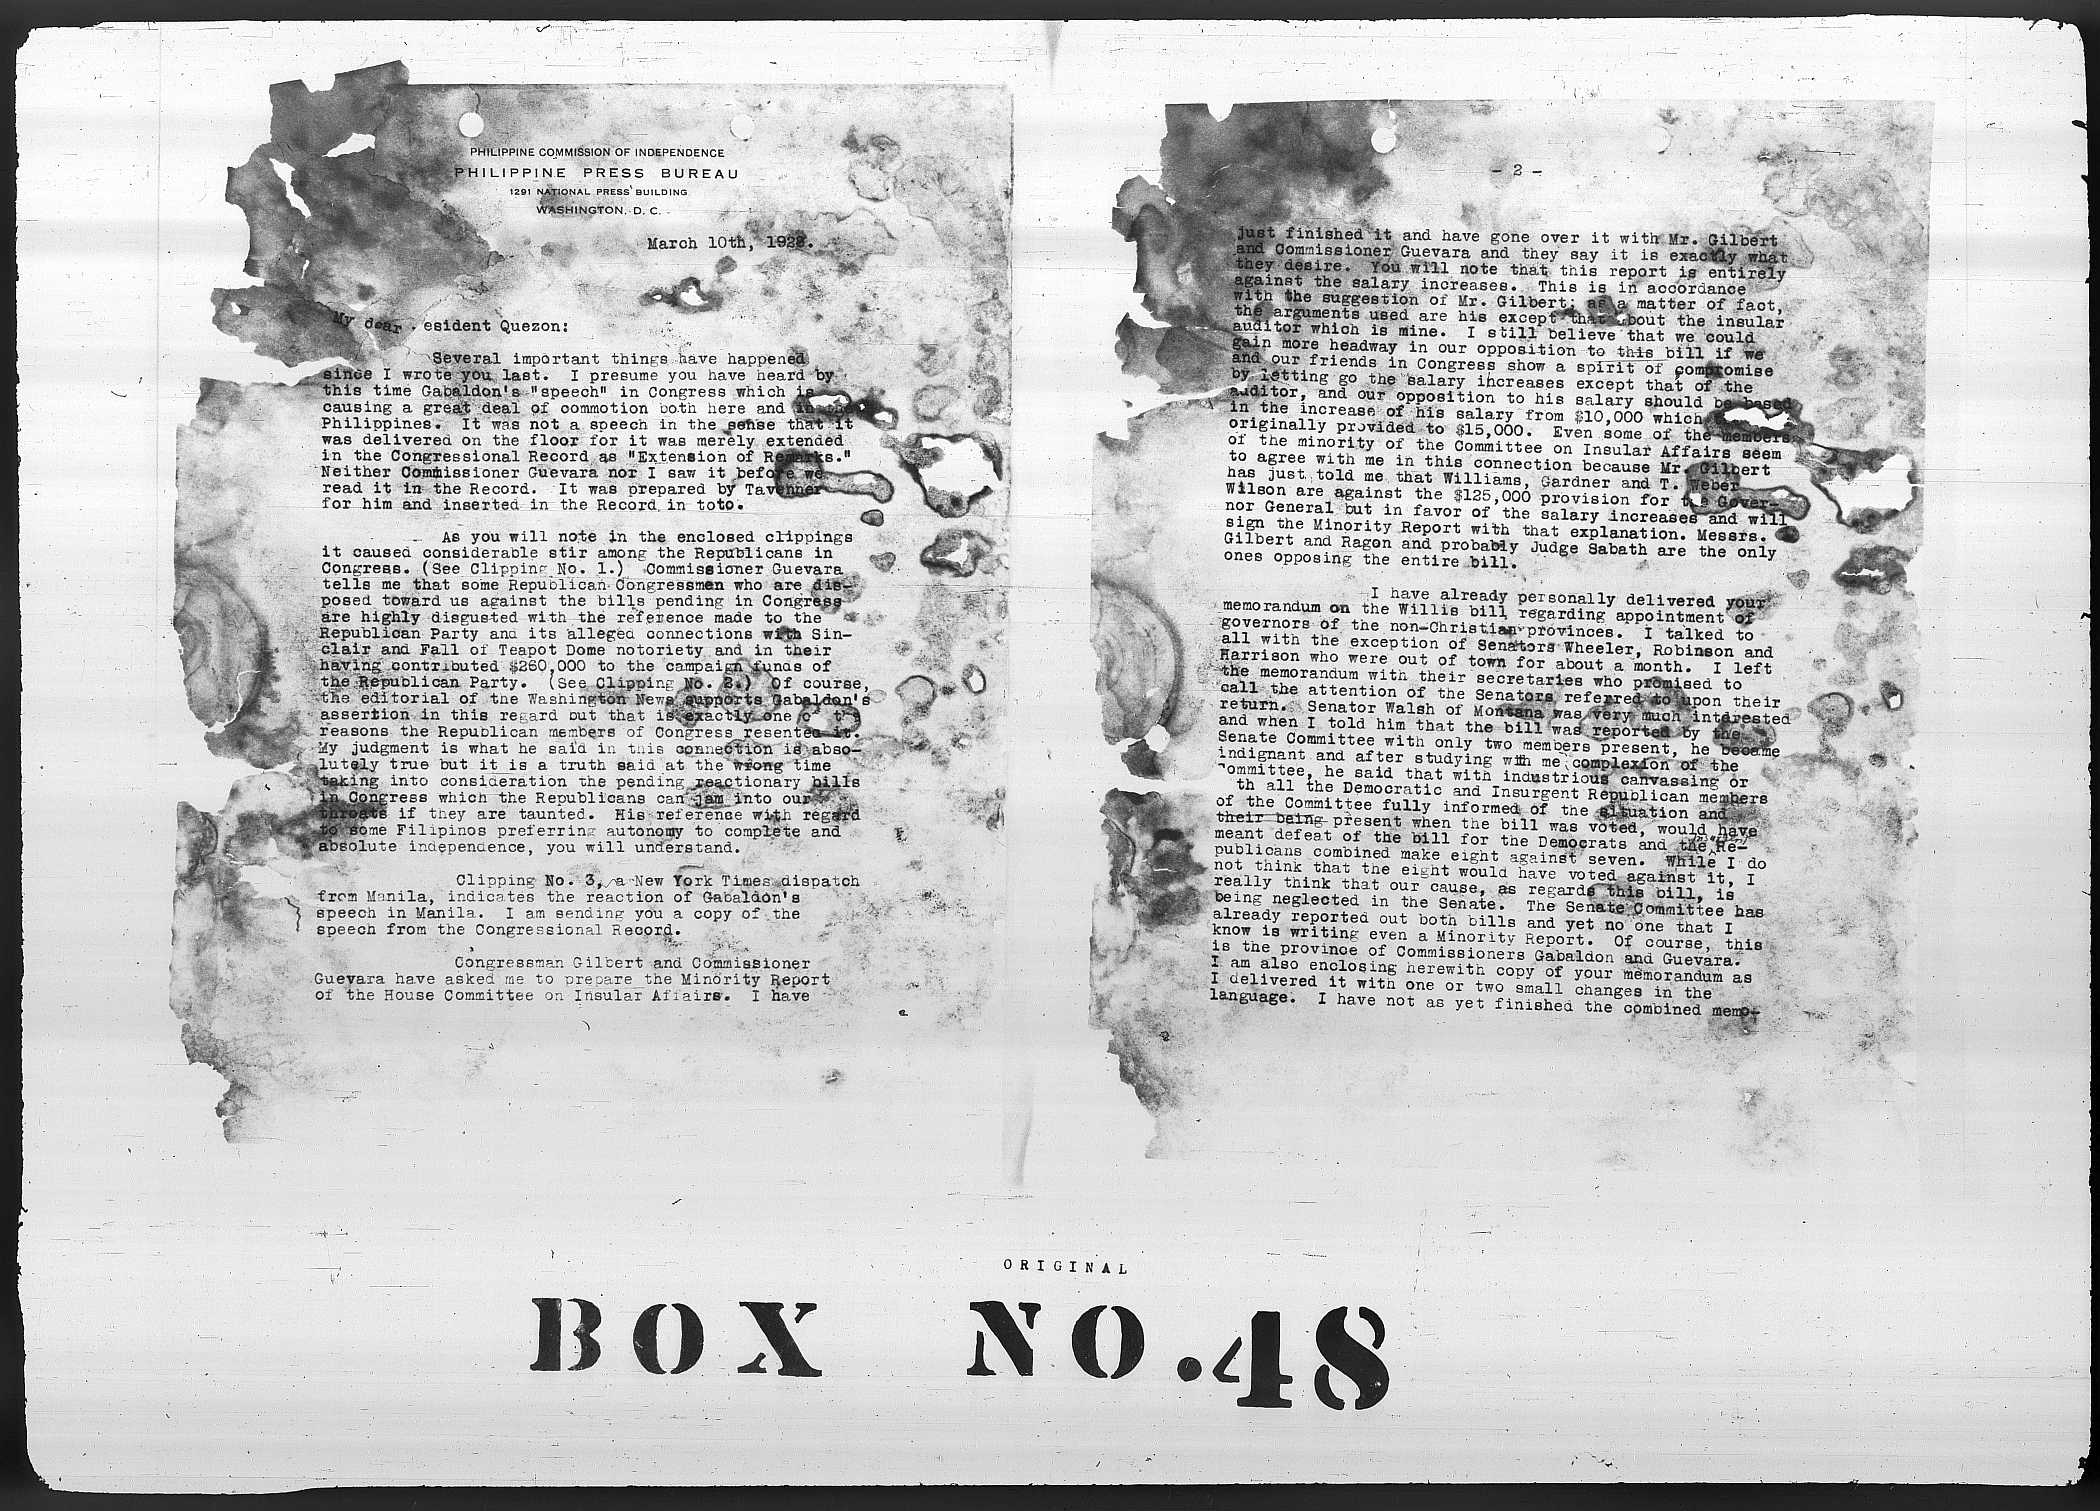 PHILIPPINE COMMISSION OF INDEPENDENCE
PHILIPPINE PRESS BUREAU
1291 NATIONAL PRESS BUILDING
WASHINGTON, D. C.
March 10th, 1928.
My dear esident Quezon:
Several important things have happened
since I wrote you last. I presume you have heard by
this time Gabaldon's "speech" in Congress which is
causing a great deal of commotion both here and in the
Philippines. It was not a speech in the sense that it
was delivered on the floor for it was merely extended
in the Congressional Record as "Extension of Remarks."
Neither Commissioner Guevara nor I saw it before we
read it in the Record. It was prepared by Tavenner
for him and inserted in the Record in toto.
As you will note in the enclosed clippings
it caused considerable stir among the Republicans in
Congress. (See Clipping No. 1.) Commissioner Guevara
tells me that some Republican Congressmen who are dis-
posed toward us against the bills pending in Congress
are highly disgusted with the reference made to the
Republican Party and its alleged connections with Sin-
clair and Fall of Teapot Dome notoriety and in their
having contributed $260,000 to the campaign funds of
the Republican Party. (See Clipping No. 2.) Of course,
the editorial of the Washington News supports Gabaldon's
assertion in this regard but that is exactly one o the
reasons the Republican members of Congress resented it.
My judgment is what he said in this connection is abso-
lutely true but it is a truth said at the wrong time
taking into consideration the pending reactionary bills
in Congress which the Republicans can jam into our
throats if they are taunted. His reference with regard
to some Filipinos preferring autonomy to complete and
absolute independence, you will understand.
Clipping No. 3, a New York Times dispatch
from Manila, indicates the reaction of Gabaldon's
speech in Manila. I am sending you a copy of the
speech from the Congressional Record.
Congressman Gilbert and Commissioner
Guevara have asked me to prepare the Minority Report
of the House Committee on Insular Affairs. I have
- 2 -
just finished it and have gone over it with Mr. Gilbert
and Commissioner Guevara and they say it is exactly what
they desire. You will note that this report is entirely
against the salary increases. This is in accordance
with the suggestion of Mr. Gilbert; as a matter of fact,
the arguments used are his except that about the insular
auditor which is mine. I still believe that we could
gain more headway in our opposition to this bill if we
and our friends in Congress show a spirit of compromise
by letting go the salary increases except that of the
auditor, and our opposition to his salary should be based
in the increase of his salary from $10,000 which
originally provided to $15,000. Even some of the members
of the minority of the Committee on Insular Affairs seem
to agree with me in this connection because Mr. Gilbert
has just told me that Williams, Gardner and T. Weber
Wilson are against the $125,000 provision for the Gover-
nor General but in favor of the salary increases and will
sign the Minority Report with that explanation. Messrs.
Gilbert and Ragon and probably Judge Sabath are the only
ones opposing the entire bill.
I have already personally delivered your
memorandum on the Willis bill regarding appointment of
governors of the non-Christian provinces. I talked to
all with the exception of Senators Wheeler, Robinson and
Harrison who were out of town for about a month. I left
the memorandum with their secretaries who promised to
call the attention of the Senators referred to upon their
return. Senator Walsh of Montana was very much interested
and when I told him that the bill was reported by the
Senate Committee with only two members present, he became
indignant and after studying with me complexion of the
ommittee, he said that with industrious canvassing or
th all the Democratic and Insurgent Republican members
of the Committee fully informed of the situation and
their being present when the bill was voted, would have
meant defeat of the bill for the Democrats and the Re-
publicans combined make eight against seven. While I do
not think that the eight would have voted against it, I
really think that our cause, as regards this bill, is
being neglected in the Senate. The Senate Committee has
already reported out both bills and yet no one that I
know is writing even a Minority Report. Of course, this
is the province of Commissioners Gabaldon and Guevara.
I am also enclosing herewith copy of your memorandum as
I delivered it with one or two small changes in the
language. I have not as yet finished the combined memo-
ORIGINAL
BOX NO. 48